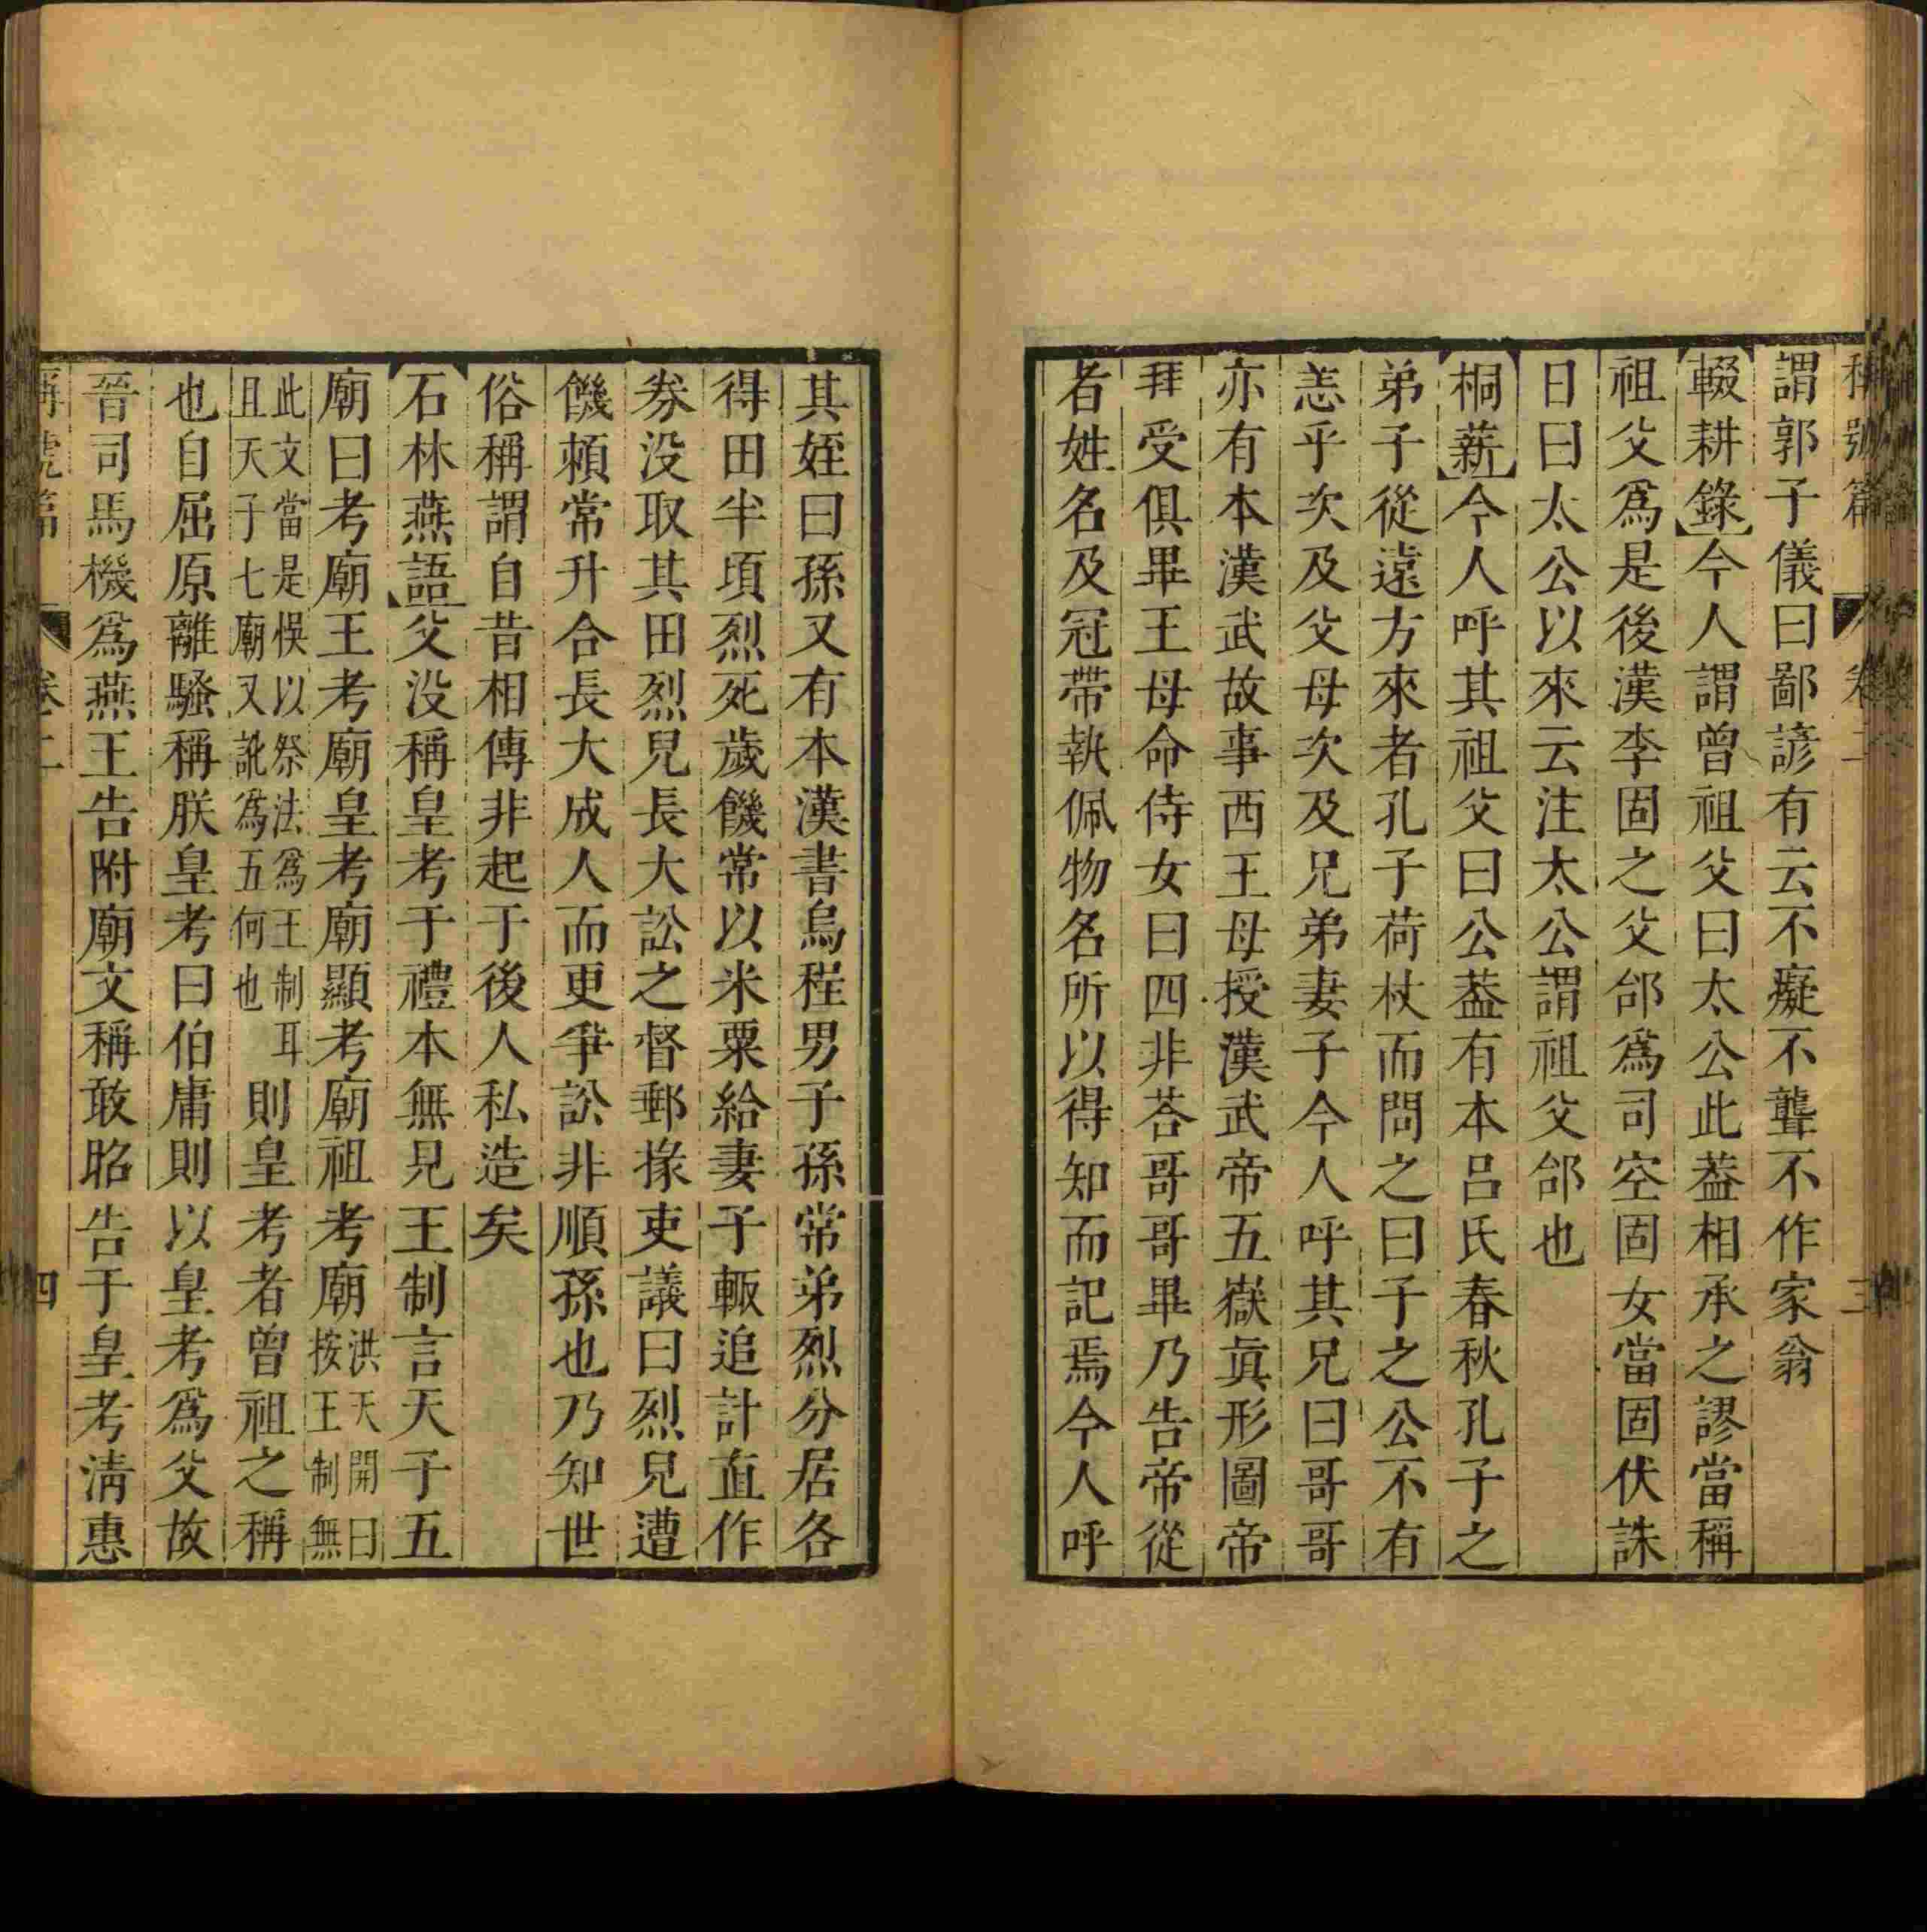 稱號篇 卷二 三
謂郭子儀曰鄙諺有云不癡不聾不作家翁
輟耕錄今人謂曾祖父曰太公此葢相承之謬當稱
祖父爲是後漢李固之父郃爲司空固女當固伏誅
日曰太公以來云注太公謂祖父郃也
桐薪今人呼其祖父曰公葢有本呂氏春秋孔子之
弟子從遠方來者孔子荷杖而問之曰子之公不有
恙乎次及父母次及兄弟妻子今人呼其兄曰哥哥
亦有本漢武故事西王母授漢武帝五嶽眞形圖帝
拜受俱畢王母命侍女曰四非荅哥哥畢乃告帝從
者姓名及冠帶執佩物名所以得知而記焉今人呼
其姪曰孫又有本漢書烏程男子孫常弟烈分居各
得田半頃烈死歲饑常以米粟給妻子輒追計直作
券没取其田烈兒長大訟之督郵掾吏議曰烈兒遭
饑賴常升合長大成人而更爭訟非順孫也乃知世
俗稱謂自昔相傳非起于後人私造矣
石林燕語父没稱皇考于禮本無見王制言天子五
廟曰考廟王考廟皇考廟顯考廟祖考廟洪天開曰按王制無
此文當是悞以祭法爲王制耳且天子七廟又訛爲五何也則皇考者曾祖之稱
也自屈原離騷稱朕皇考曰伯庸則以皇考爲父故
晉司馬機爲燕王告附廟文稱敢昭告于皇考淸惠
稱號篇 卷二 四